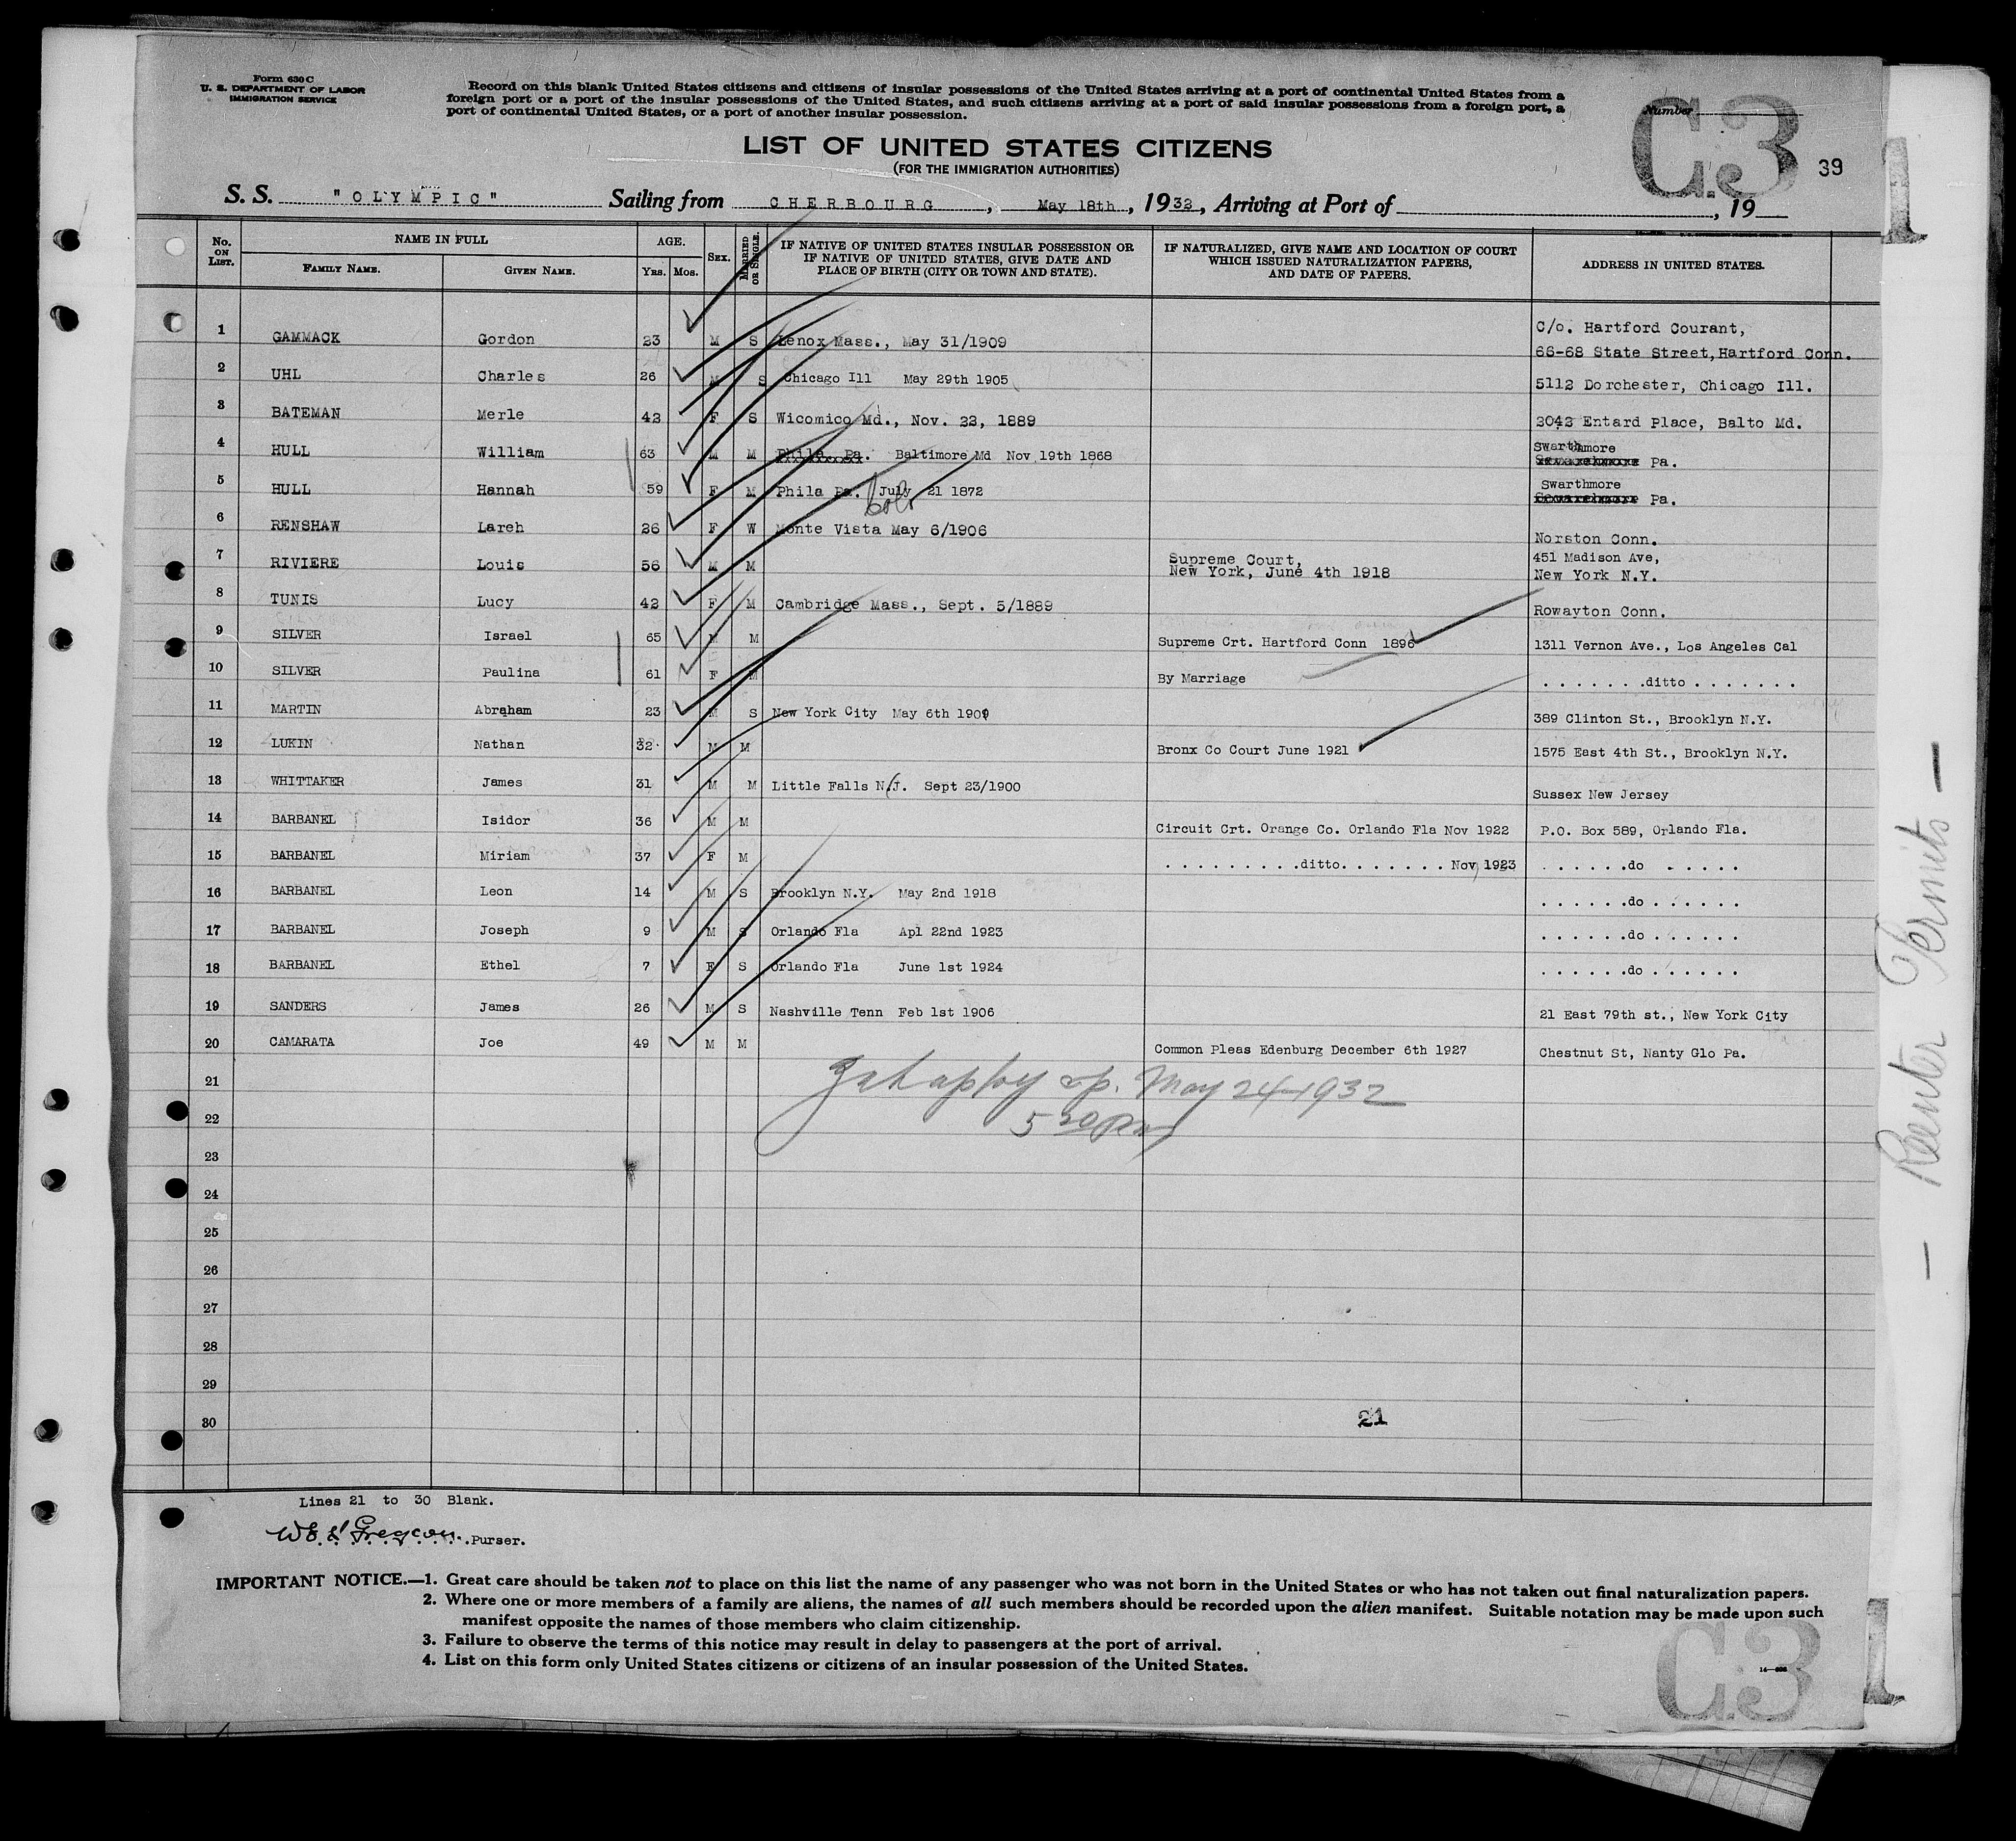 Form 630 C
U. S. DEPARTMENT OF LABOR
IMMIGRATION SERVICE
Record on this blank United States citizens and citizens of insular possessions of the United States arriving at a port of continental United States from a
foreign port or a port of the insular possessions of the United States, and such citizens arriving at a port of said insular possessions from a foreign port, a
port of continental United States, or a port of another insular possession.
Number
C3
39
LIST OF UNITED STATES CITIZENS
(FOR THE IMMIGRATION AUTHORITIES)
S. S. "OLYMPIC" Sailing from CHERBOURG, May 18th, 1932, Arriving at Port of , 19
No. ON LIST. NAME IN FULL FAMILY NAME. GIVEN NAME. AGE. YRS. MOS. SEX. MARRIED OR SINGLE. IF NATIVE OF UNITED STATES INSULAR POSSESSION OR IF NATIVE OF UNITED STATES, GIVE DATE AND PLACE OF BIRTH (CITY OR TOWN AND STATE). IF NATURALIZED, GIVE NAME AND LOCATION OF COURT WHICH ISSUED NATURALIZATION PAPERS, AND DATE OF PAPERS. ADDRESS IN UNITED STATES.
1 GAMMACK Gordon 23 M S Lenox Mass., May 31/1909 C/o. Hartford Courant,
66-68 State Street, Hartford Conn.
2 UHL Charles 26 M S Chicago Ill May 29th 1905 5112 Dorchester, Chicago Ill.
3 BATEMAN Merle 42 F S Wicomico Md., Nov. 22, 1889 2042 Entard Place, Balto Md.
4 HULL William 63 M M Phila. Pa. Baltimore Md Nov 19th 1868 Swarthmore Pa.
5 HULL Hannah 59 F M Phila Pa. July 21 1872 Swarthmore Pa.
Colo
6 RENSHAW Lareh 26 F W Monte Vista May 6/1906 Norston Conn.
7 RIVIERE Louis 56 M M Supreme Court, 451 Madison Ave,
New York, June 4th 1918 New York N.Y.
8 TUNIS Lucy 42 F M Cambridge Mass., Sept. 5/1889 Rowayton Conn.
9 SILVER Israel 65 M M Supreme Crt. Hartford Conn 1896 1311 Vernon Ave., Los Angeles Cal
10 SILVER Paulina 61 F M By Marriage . . . . . . .ditto . . . . . . .
11 MARTIN Abraham 23 M S New York City May 6th 1909 389 Clinton St., Brooklyn N.Y.
12 LUKIN Nathan 32 M M Bronx Co Court June 1921 1575 East 4th St., Brooklyn N.Y.
13 WHITTAKER James 31 M M Little Falls N.J. Sept 23/1900 Sussex New Jersey
14 BARBANEL Isidor 36 M M Circuit Crt. Orange Co. Orlando Fla Nov 1922 P.O. Box 589, Orlando Fla.
15 BARBANEL Miriam 37 F M . . . . . . . . . .ditto. . . . . . . . Nov 1923 . . . . . .do . . . . . .
16 BARBANEL Leon 14 M S Brooklyn N.Y. May 2nd 1918 . . . . . .do . . . . . .
17 BARBANEL Joseph 9 M S Orlando Fla Apl 22nd 1923 . . . . . .do . . . . . .
18 BARBANEL Ethel 7 F S Orlando Fla June 1st 1924 . . . . . .do . . . . . .
19 SANDERS James 26 M S Nashville Tenn Feb 1st 1906 21 East 79th st., New York City
20 CAMARATA Joe 49 M M Common Pleas Edenburg December 6th 1927 Chestnut St, Nanty Glo Pa.
21 May 24-1932
22
23
24
25
26
27
28
29
30 21
Lines 21 to 30 Blank.
Purser.
IMPORTANT NOTICE.—1. Great care should be taken not to place on this list the name of any passenger who was not born in the United States or who has not taken out final naturalization papers.
2. Where one or more members of a family are aliens, the names of all such members should be recorded upon the alien manifest. Suitable notation may be made upon such
manifest opposite the names of those members who claim citizenship.
3. Failure to observe the terms of this notice may result in delay to passengers at the port of arrival.
4. List on this form only United States citizens or citizens of an insular possession of the United States.
C3
— Reenter Permits —
1
1